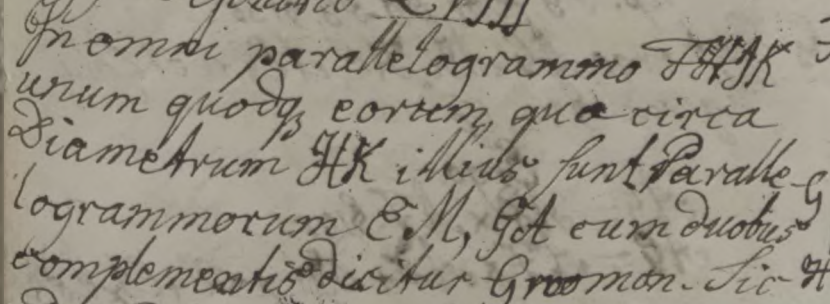 XVIII
In omni parallelogrammo FHIK
unum quodqꝫ eorum, quæ circa
Diametrum HK illius sunt Paralle-
logrammorum EM, GA cum duobus
complementis dicitur Gnomon. Sic